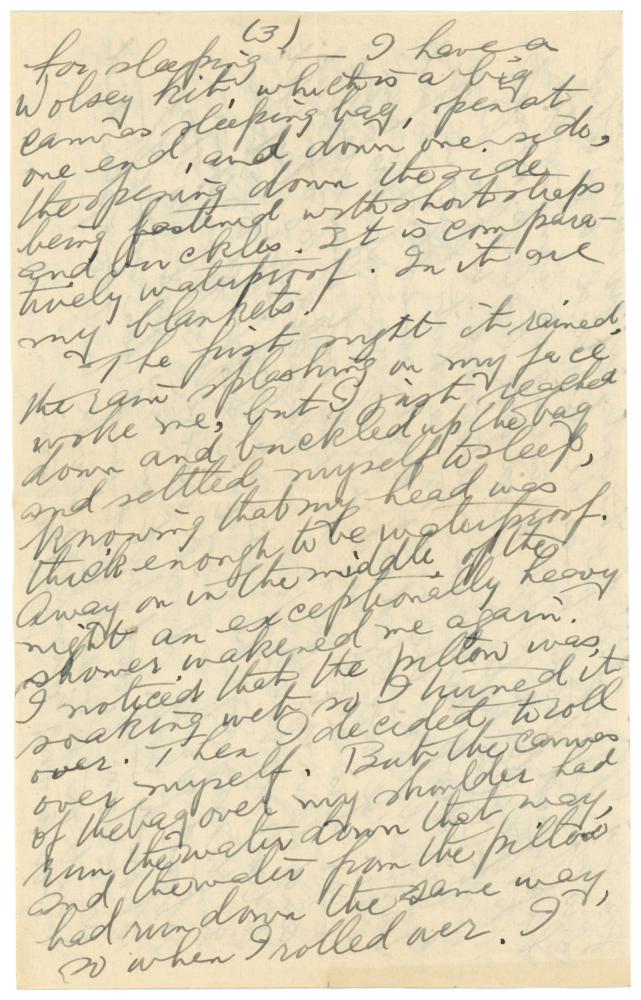 (3)
for sleeping — I have a
Wolsey kit, which is a big
canvas sleeping bag, open at
one end, and down one side,
the opening down the side
being fastened with short straps
and buckles. It is compara-
tively waterproof. In it are
my blankets.
The first night it rained,
the rain splashing on my face
woke me, but I just reached
down and buckled up the bag
and settled myself to sleep,
knowing that my head was
thick enough to be waterproof.
Away on in the middle of the
night an exceptionally heavy
shower wakened me again.
I noticed that the pillow was
soaking wet so I turned it
over. Then I decided to roll
over myself. But the canvas
of the bag over my shoulder had
run the water down that way,
and the water from the pillow
had run down the same way,
so when I rolled over. I